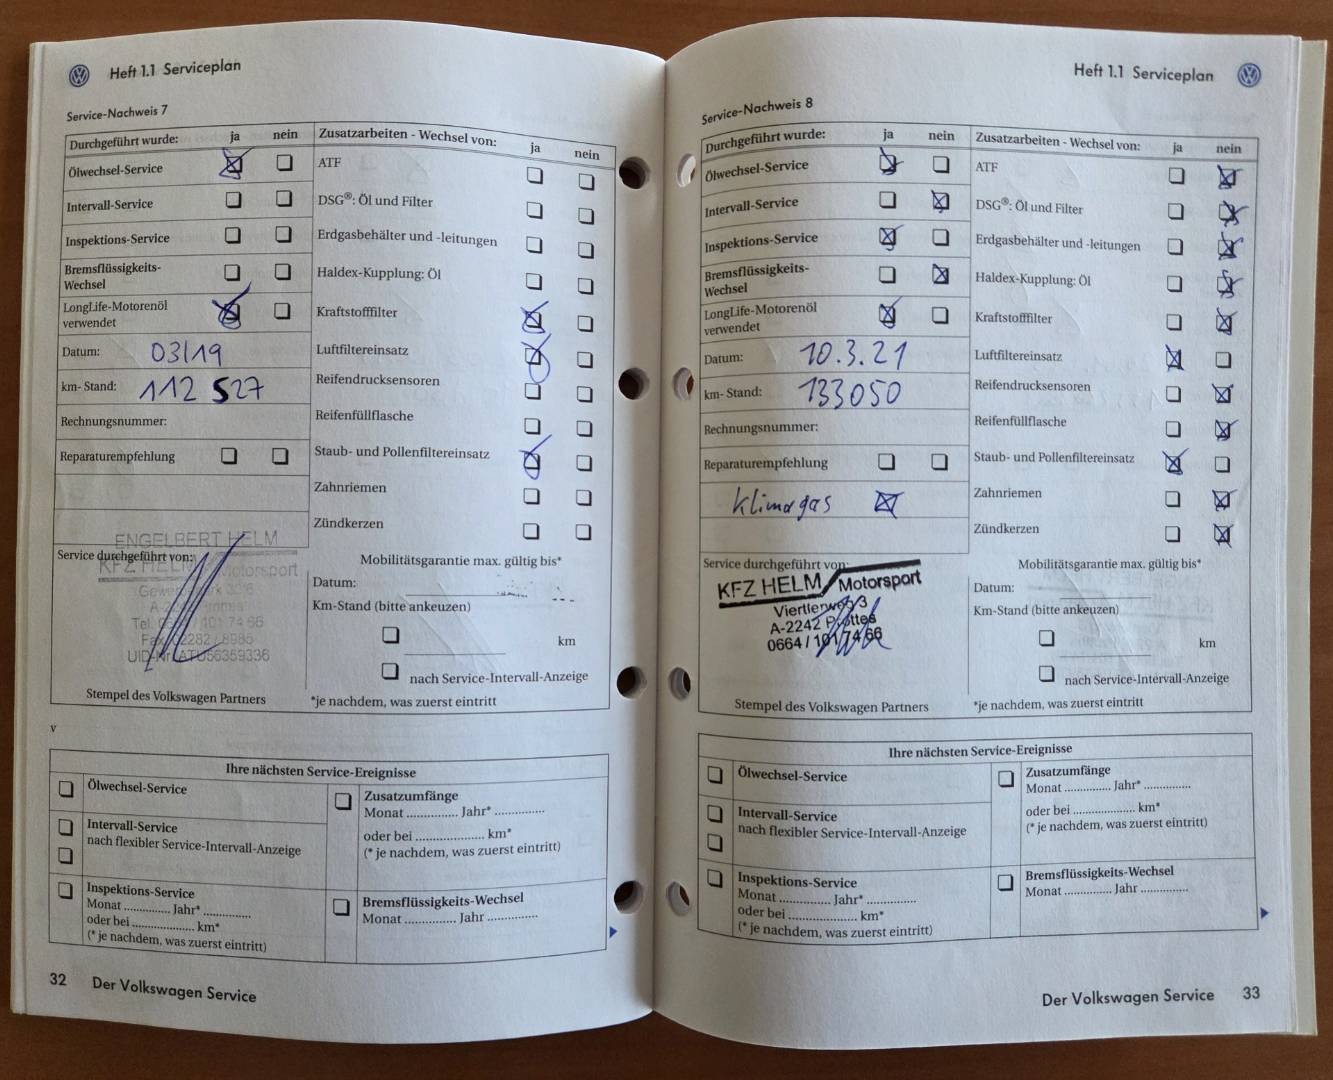 Heft 1.1 Serviceplan
Service-Nachweis 7
Durchgeführt wurde: ja nein
Ölwechsel-Service
Intervall-Service
Inspektions-Service
Bremsflüssigkeits-
Wechsel
LongLife-Motorenöl
verwendet
Datum: 03/19
km- Stand: 112 527
Rechnungsnummer:
Reparaturempfehlung
Zusatzarbeiten - Wechsel von: ja nein
ATF
DSG®: Öl und Filter
Erdgasbehälter und -leitungen
Haldex-Kupplung: Öl
Kraftstofffilter
Luftfiltereinsatz
Reifendrucksensoren
Reifenfüllflasche
Staub- und Pollenfiltereinsatz
Zahnriemen
Zündkerzen
Service durchgeführt von:
ENGELBERT HELM
KFZ HELM Motorsport
Tel. 0664 / 101 74 66
Fax 02282 / 8985
UID-Nr. ATU56359336
Stempel des Volkswagen Partners
Mobilitätsgarantie max. gültig bis*
Datum:
Km-Stand (bitte ankeuzen)
km
nach Service-Intervall-Anzeige
*je nachdem, was zuerst eintritt
v
Ihre nächsten Service-Ereignisse
Ölwechsel-Service
Intervall-Service
nach flexibler Service-Intervall-Anzeige
Inspektions-Service
Monat .............. Jahr* ..............
oder bei .................... km*
(* je nachdem, was zuerst eintritt)
Zusatzumfänge
Monat .............. Jahr* ..............
oder bei .................... km*
(* je nachdem, was zuerst eintritt)
Bremsflüssigkeits-Wechsel
Monat .............. Jahr ..............
32 Der Volkswagen Service
Heft 1.1 Serviceplan
Service-Nachweis 8
Durchgeführt wurde: ja nein
Ölwechsel-Service
Intervall-Service
Inspektions-Service
Bremsflüssigkeits-
Wechsel
LongLife-Motorenöl
verwendet
Datum: 10.3.21
km- Stand: 133050
Rechnungsnummer:
Reparaturempfehlung
Klimagas
Zusatzarbeiten - Wechsel von: ja nein
ATF
DSG®: Öl und Filter
Erdgasbehälter und -leitungen
Haldex-Kupplung: Öl
Kraftstofffilter
Luftfiltereinsatz
Reifendrucksensoren
Reifenfüllflasche
Staub- und Pollenfiltereinsatz
Zahnriemen
Zündkerzen
Service durchgeführt von:
KFZ HELM Motorsport
Viertlerweg 3
A-2242 Prottes
0664 / 101 74 66
Stempel des Volkswagen Partners
Mobilitätsgarantie max. gültig bis*
Datum:
Km-Stand (bitte ankeuzen)
km
nach Service-Intervall-Anzeige
*je nachdem, was zuerst eintritt
Ihre nächsten Service-Ereignisse
Ölwechsel-Service
Intervall-Service
nach flexibler Service-Intervall-Anzeige
Inspektions-Service
Monat .............. Jahr* ..............
oder bei .................... km*
(* je nachdem, was zuerst eintritt)
Zusatzumfänge
Monat .............. Jahr* ..............
oder bei .................... km*
(* je nachdem, was zuerst eintritt)
Bremsflüssigkeits-Wechsel
Monat .............. Jahr ..............
Der Volkswagen Service 33